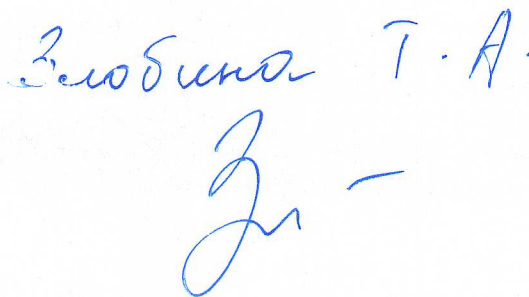 Злобина Т. А.